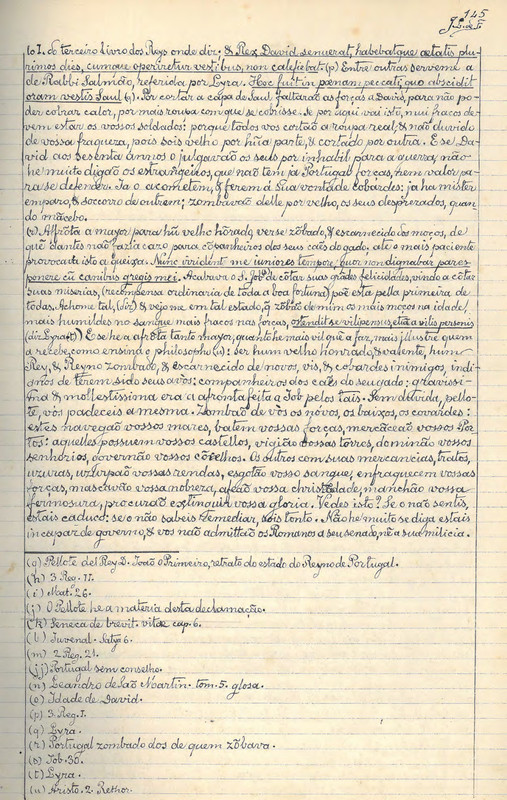 145
lo I. do terceiro livro dos Reys onde diz: & Rex David senuerat, habebatque aetatis plu-
rimos dies, cumque operiretur vestibus, non calefiebat (p) Entre outras serve me a
de Rabbi Salmão, referida por Lyra. Hoc fuit in poenam peccati, quo abscidit
oram vestis Saul (q). Por cortar a capa de Saul faltarão as forças a David, para não po-
der cobrar calor, por mais roupa com que se cobrisse. Se por aqui vai isto, mui fracos de-
vem estar os vossos soldados: porque todos vos cortão a roupa real, & não duvido
de vossa fraqueza, pois sois velho por hũa parte, & cortado por outra. E se Da-
vid aos sesenta annos o julgavão os seus por inhabil para a guerra, não
he muito digão os estrangeiros, que não tem ja Portugal forças, nem valor pa-
ra se defender. Ia o acometem, & ferem á sua vontade cobardes: ja ha mister
emparo, & socorro de outrem; zombavão delle por velho, os seus desprezados, quan
do mãcebo.
(r) Affrõta a mayor para hũ velho hõrado, verse zõbado, & escarnecido dos moços, de
que dantes não fazia cazo para cõpanheiros dos seus cães do gado. ate o mais paciente
provocara isto a queixa. Nunc irrident me iuniores tempore, quor. non dignabar patres
ponere cũ canibus gregis mei. Acabava o S. Job de cõtar suas grãdes felicidades, vindo a cõtar
suas miserias, (recompensa ordinaria de toda a boa fortuna) põe esta pela primeira de
todas. Achome tal, (diz) & vejome em tal estado, q̃ zõbão de mim os mais moços na idade,
mais humildes no sangue mais fracos nas forças, ostendit se vilipensus, etiã a vilis personis
(diz Lyra (t)) E se he a afrõta tanto mayor, quanto he mais vil que a faz, mais illustre quem
a recebe, como ensina o philosopho (u): Ser hum velho honrado, & valente, hum
Rey, & Reyno zombado, & escarnecido de novos, vis, & cobardes inimigos, indi-
gnos de terem sido seus avós: companheiros dos cães do seu gado: gravissi-
ma & mollestissima era a afronta feita a Job pelos tais. Sem duvida, pello-
te, vós padeceis a mesma. Zombão de vós os novos, os baixos, os covardes:
estes navegão vossos mares, batem vossas forças, mercãceão vossos Por-
tos: aquelles possuem vossos castellos, vigião vossas torres, dominão vossos
senhorios, governão vossos cõcelhos. Os outros com suas mercancias, tratos,
uzuras, uzurpão vossas rendas, esgotão vosso sangue, enfraquecem vossas
forças, mascavão vossa nobreza, afeão vossa christãdade, manchão vossa
fermosura, procurão extinguir vossa gloria. Vedes isto? Se o não sentis,
estais caduco: se o não sabeis remediar, sois tonto. Não he muito se diga estais
incapaz de governo, & vos não admittão os Romanos a seu senado, nẽ a sua milicia.
(g) Pellote del Rey D. Ioão o Primeiro, retrato do estado do Reyno de Portugal.
(h) 3 Reg. 11.
(i) Mat. 26.
(j) O Pellote he a materia desta declamação.
(k) Seneca de brevit. vitae cap. 6.
(l) Juvenal. Satya 6.
(m) 2 Reg. 21.
(jj) Portugal sem conselho.
(n) Leandro de São Martin. tom. 5. glosa.
(o) Idade de David.
(p) 3. Reg. I.
(q) Lyra.
(r) Portugal zombado dos de quem zõbava.
(s) Job. 30.
(t) Lyra.
(u) Aristo. 2. Rethor.